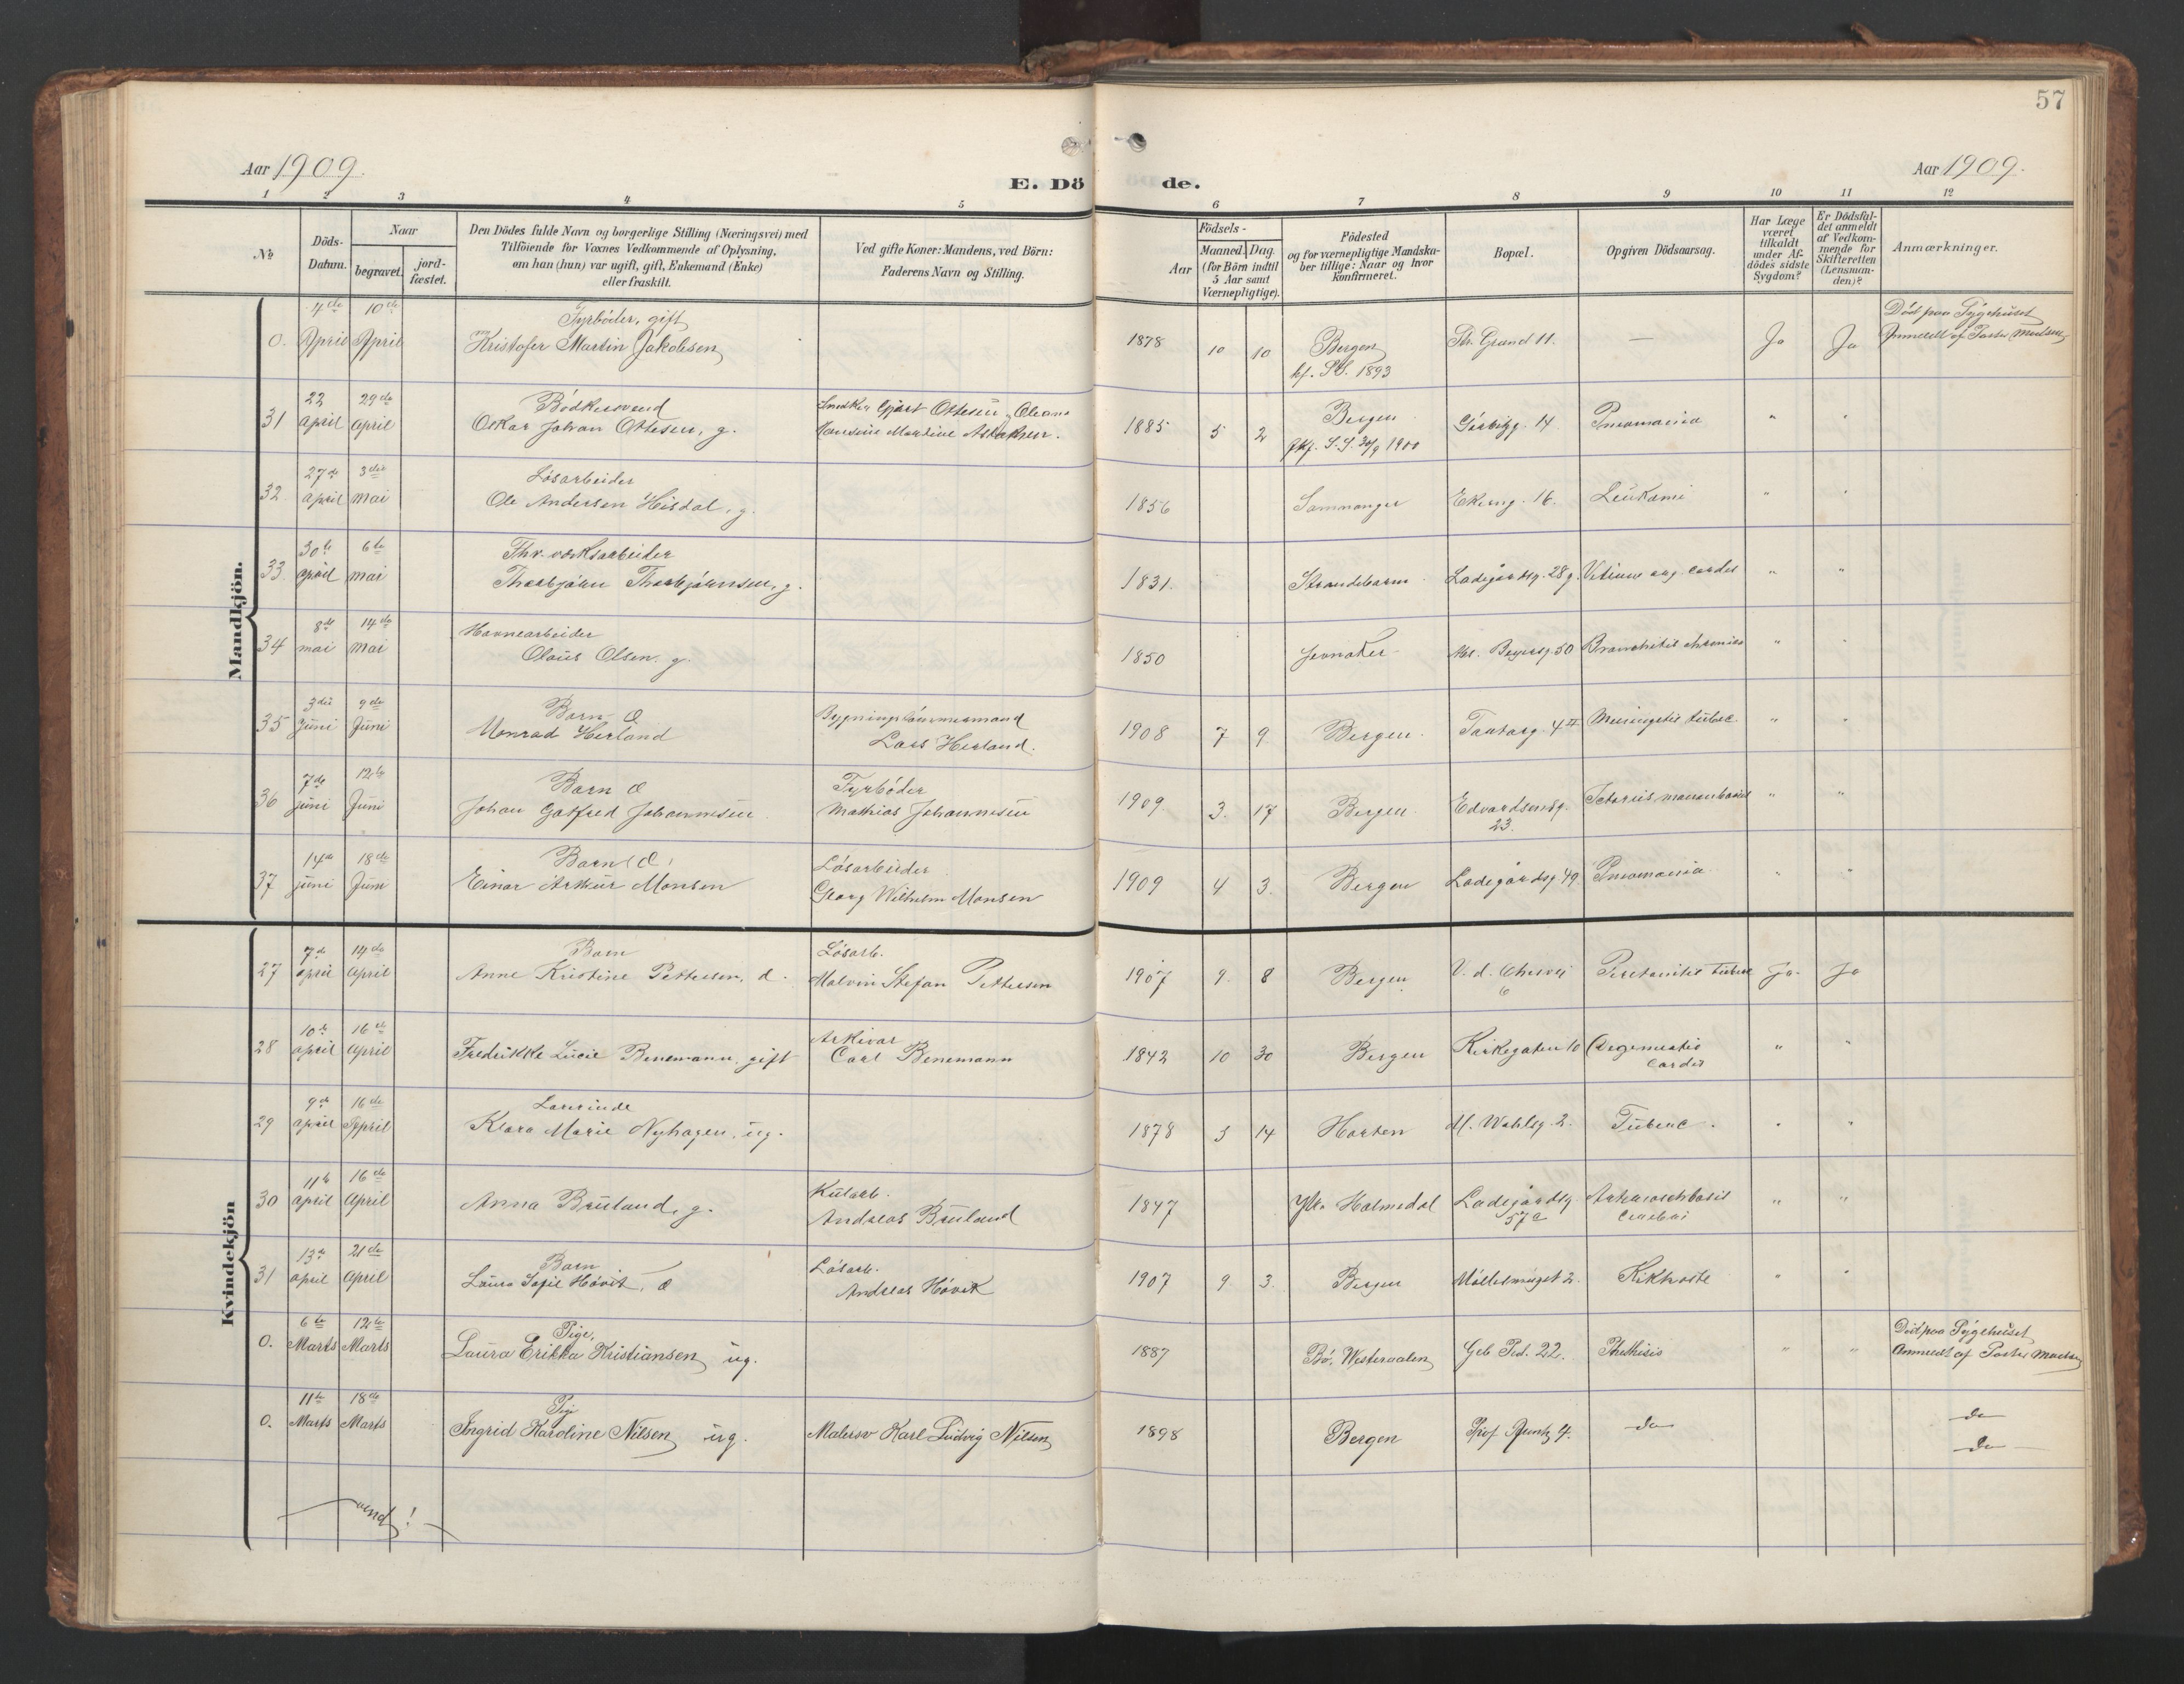 57
Aar 1909.
E. Dö
de.
Aar 1909.
1 2 3 4 5 6 7 8 9 10 11 12
No
Döds-Datum.
Naar
begravet.
jord-fæstet.
Den Dödes fulde Navn og borgerlige Stilling (Næringsvei) med
Tilföiende for Voxnes Vedkommende af Oplysning,
om han (hun) var ugift, gift, Enkemand (Enke)
eller fraskilt.
Ved gifte Koner: Mandens, ved Börn:
Faderens Navn og Stilling.
Födsels-
Aar
Maaned. Dag
(for Börn indtil
5 Aar samt
Værnepligtige).
Födested
og for værnepligtige Mandska-
ber tillige: Naar og hvor
konfirmeret.
Bopæl.
Opgiven Dödsaarsag.
Har Læge
været
tilkaldt
under Af-
dödes sidste
Sygdom?
Er Dödsfal-
det anmeldt
af Vedkom-
mende for
Skifteretten
(Lensman-
den)?
Anmærkninger.
Mandkjön.
0. 7de April 10de April Fyrböder, gift
Kristofer Martin Jakobsen 1878 10 10 Bergen
kf. 1893 Str. Grand 11. — Ja Ja Död paa Sygehuset
Anmeldt af Pastor Madsen
31 22 April 29de April Bödkersvend
Oskar Johan Ottesen, g. Gjært Ottesen Oleana
Martine 1885 5 2 Bergen
S.S. 30/9 1900 14. Pneumonia " "
32. 27de April 3die Mai Lösarbeider
Ole Andersen Hisdal, g. 1856 Sammanger Ekreng. 16. Leukæmi " "
33. 30te April 6te Mai Thr. værksarbeider
Thorbjörn Thorbjörnsen, g. 1831. Strandebarm Ladegårdsg. 28 Vitium org. cordis " "
34 8de Mai 14de Mai Havnearbeider
Olaus Olsen. g. 1850 Jevnaker Abs. Beyersg. 50 Bronchitis chronica " "
35 3die Juni 9de Juni Barn
Monrad Herland Bygningstömmermand
Lars Herland. 1908 7 9 Bergen. 4 II Meningitis tuberc. " "
36 7de Juni 12te Juni Barn
Johan Gotfred Johannesen Fyrböder
Mathias Johannesen 1909. 3. 17 Bergen. Edvardsensg.
23. " "
37 14de Juni 18de Juni Barn
Einar Arthur Monsen Lösarbeider
Georg Wilhelm Monsen 1909 4 3. Bergen Ladegårdsg. 49 Pneumonia " "
Kvindekjön
27 7de April 14de April Barn
Anne Kristine Pettersen, d. Lösarb.
Malvin Stefan Pettersen 1907 9. 8 Bergen V. d. 6 Peritonitis tuberc Ja. Ja
28 10de April 16de April Fredrikke Lucie Benemann, gift Arkivar
Carl Benemann 1842 10 30 Bergen Kirkegaten 10 Degeneratio
cordis " "
29 9de April 16de April Lærerinde
Klara Marie Nyhagen, ug. 1878 3 14 Horten M. Wahlsg. 2. Tuberc. " "
30 11te April 16de April Anna Bruland, g. Kularb.
Andreas Bruland 1847 Ytr. Holmedal Ladegårdsg.
57c
cerebri " "
31 13de April 21de April Barn
Laura Sofie Hövik, Lösarb.
Andreas Hövik 1907 9. 3. Bergen Möllesmuget 2. Kikhoste " "
0. 6te Marts 12te Marts Pige,
Laura Erikka Kristiansen, ug. 1887 Bö, Westeraalen 22. Phthisis " " Död paa Sygehuset
Anmeldt af Pastor Madsen
0. 11te Marts 18de Marts Pige
Ingrid Karoline Nilsen ug. Malersv Karl Ludvig Nilsen 1898 Bergen 4. do do
do
vend!